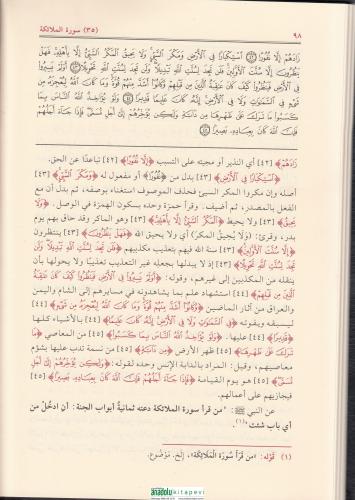 ٩٨ (٣٥) سورة الملائكة
زَادَهُمْ إِلَّا نُفُورًا ﴿٤٢﴾ ٱسْتِكْبَارًا فِي ٱلْأَرْضِ وَمَكْرَ ٱلسَّيِّئِ وَلَا يَحِيقُ ٱلْمَكْرُ ٱلسَّيِّئُ إِلَّا بِأَهْلِهِ فَهَلْ
يَنظُرُونَ إِلَّا سُنَّتَ ٱلْأَوَّلِينَ فَلَن تَجِدَ لِسُنَّتِ ٱللَّهِ تَبْدِيلًا وَلَن تَجِدَ لِسُنَّتِ ٱللَّهِ تَحْوِيلًا ﴿٤٣﴾ أَوَلَمْ يَسِيرُوا
فِي ٱلْأَرْضِ فَيَنظُرُوا كَيْفَ كَانَ عَاقِبَةُ ٱلَّذِينَ مِن قَبْلِهِمْ وَكَانُوا أَشَدَّ مِنْهُمْ قُوَّةً وَمَا كَانَ ٱللَّهُ لِيُعْجِزَهُ مِن
شَيْءٍ فِي ٱلسَّمَاوَاتِ وَلَا فِي ٱلْأَرْضِ إِنَّهُ كَانَ عَلِيمًا قَدِيرًا ﴿٤٤﴾ وَلَوْ يُؤَاخِذُ ٱللَّهُ ٱلنَّاسَ بِمَا
كَسَبُوا مَا تَرَكَ عَلَى ظَهْرِهَا مِن دَابَّةٍ وَلَكِن يُؤَخِّرُهُمْ إِلَى أَجَلٍ مُّسَمًّى فَإِذَا جَاءَ أَجَلُهُمْ
فَإِنَّ ٱللَّهَ كَانَ بِعِبَادِهِ بَصِيرًا ﴿٤٥﴾
زَادَهُمْ﴾ [٤٢] أي النذير أو مجيئه على التسبب ﴿إِلَّا نُفُورًا﴾ [٤٢] تباعدًا عن الحق.
﴿ٱسْتِكْبَارًا فِي ٱلْأَرْضِ﴾ [٤٣] بدل من ﴿نُفُورًا﴾ أو مفعول له ﴿وَمَكْرَ ٱلسَّيِّئِ﴾ [٤٣]
أصله وإن مكروا المكر السيئ فحذف الموصوف استغناء بوصفه، ثم بدل أن مع
الفعل بالمصدر، ثم أضيف. وقرأ حمزة وحده بسكون الهمزة في الوصل. ﴿وَلَا
يَحِيقُ﴾ [٤٣] ولا يحيط ﴿ٱلْمَكْرُ ٱلسَّيِّئُ إِلَّا بِأَهْلِهِ﴾ [٤٣] وهو الماكر وقد حاق بهم يوم
بدر، وقرئ: (وَلَا يُحِيقُ المكرَ) أي ولا يحيق الله ﴿فَهَلْ يَنظُرُونَ﴾ [٤٣] ينتظرون
﴿إِلَّا سُنَّتَ ٱلْأَوَّلِينَ﴾ [٤٣] سنة الله فيهم بتعذيب مكذبيهم ﴿فَلَن تَجِدَ لِسُنَّتِ ٱللَّهِ تَبْدِيلًا وَلَن
تَجِدَ لِسُنَّتِ ٱللَّهِ تَحْوِيلًا﴾ [٤٣] إذ لا يبدلها بجعله غير التعذيب تعذيبًا ولا يحولها بأن
ينقله من المكذبين إلى غيرهم، وقوله: ﴿أَوَلَمْ يَسِيرُوا فِي ٱلْأَرْضِ فَيَنظُرُوا كَيْفَ كَانَ عَاقِبَةُ
ٱلَّذِينَ مِن قَبْلِهِمْ﴾ [٤٤] استشهاد علم بما يشاهدونه في مسايرهم إلى الشام واليمن
والعراق من آثار الماضين ﴿وَكَانُوا أَشَدَّ مِنْهُمْ قُوَّةً وَمَا كَانَ ٱللَّهُ لِيُعْجِزَهُ مِن شَيْءٍ﴾ [٤٤]
ليسبقه ويفوته ﴿فِي ٱلسَّمَاوَاتِ وَلَا فِي ٱلْأَرْضِ إِنَّهُ كَانَ عَلِيمًا﴾ [٤٤] بالأشياء كلها
﴿قَدِيرًا﴾ [٤٤] عليها. ﴿وَلَوْ يُؤَاخِذُ ٱللَّهُ ٱلنَّاسَ بِمَا كَسَبُوا﴾ [٤٥] من المعاصي ﴿مَا
تَرَكَ عَلَى ظَهْرِهَا﴾ [٤٥] ظهر الأرض ﴿مِن دَابَّةٍ﴾ [٤٥] من نسمة تدب عليها بشؤم
معاصيهم، وقيل: المراد بالدابة الإنس وحده لقوله: ﴿وَلَكِن يُؤَخِّرُهُمْ إِلَى أَجَلٍ
مُّسَمًّى﴾ [٤٥] هو يوم القيامة ﴿فَإِذَا جَاءَ أَجَلُهُمْ فَإِنَّ ٱللَّهَ كَانَ بِعِبَادِهِ بَصِيرًا﴾ [٤٥]
فيجازيهم على أعمالهم.
عن النبي ﷺ: «من قرأ سورة الملائكة دعته ثمانيةُ أبواب الجنة: أن ادخُلْ من
أي باب شئت»(١).
(١) قَوْلُه: «من قَرَأَ سُورَةَ المَلَائِكَةِ»، إلَخ. مَوْضُوع.
anadolukitapevi